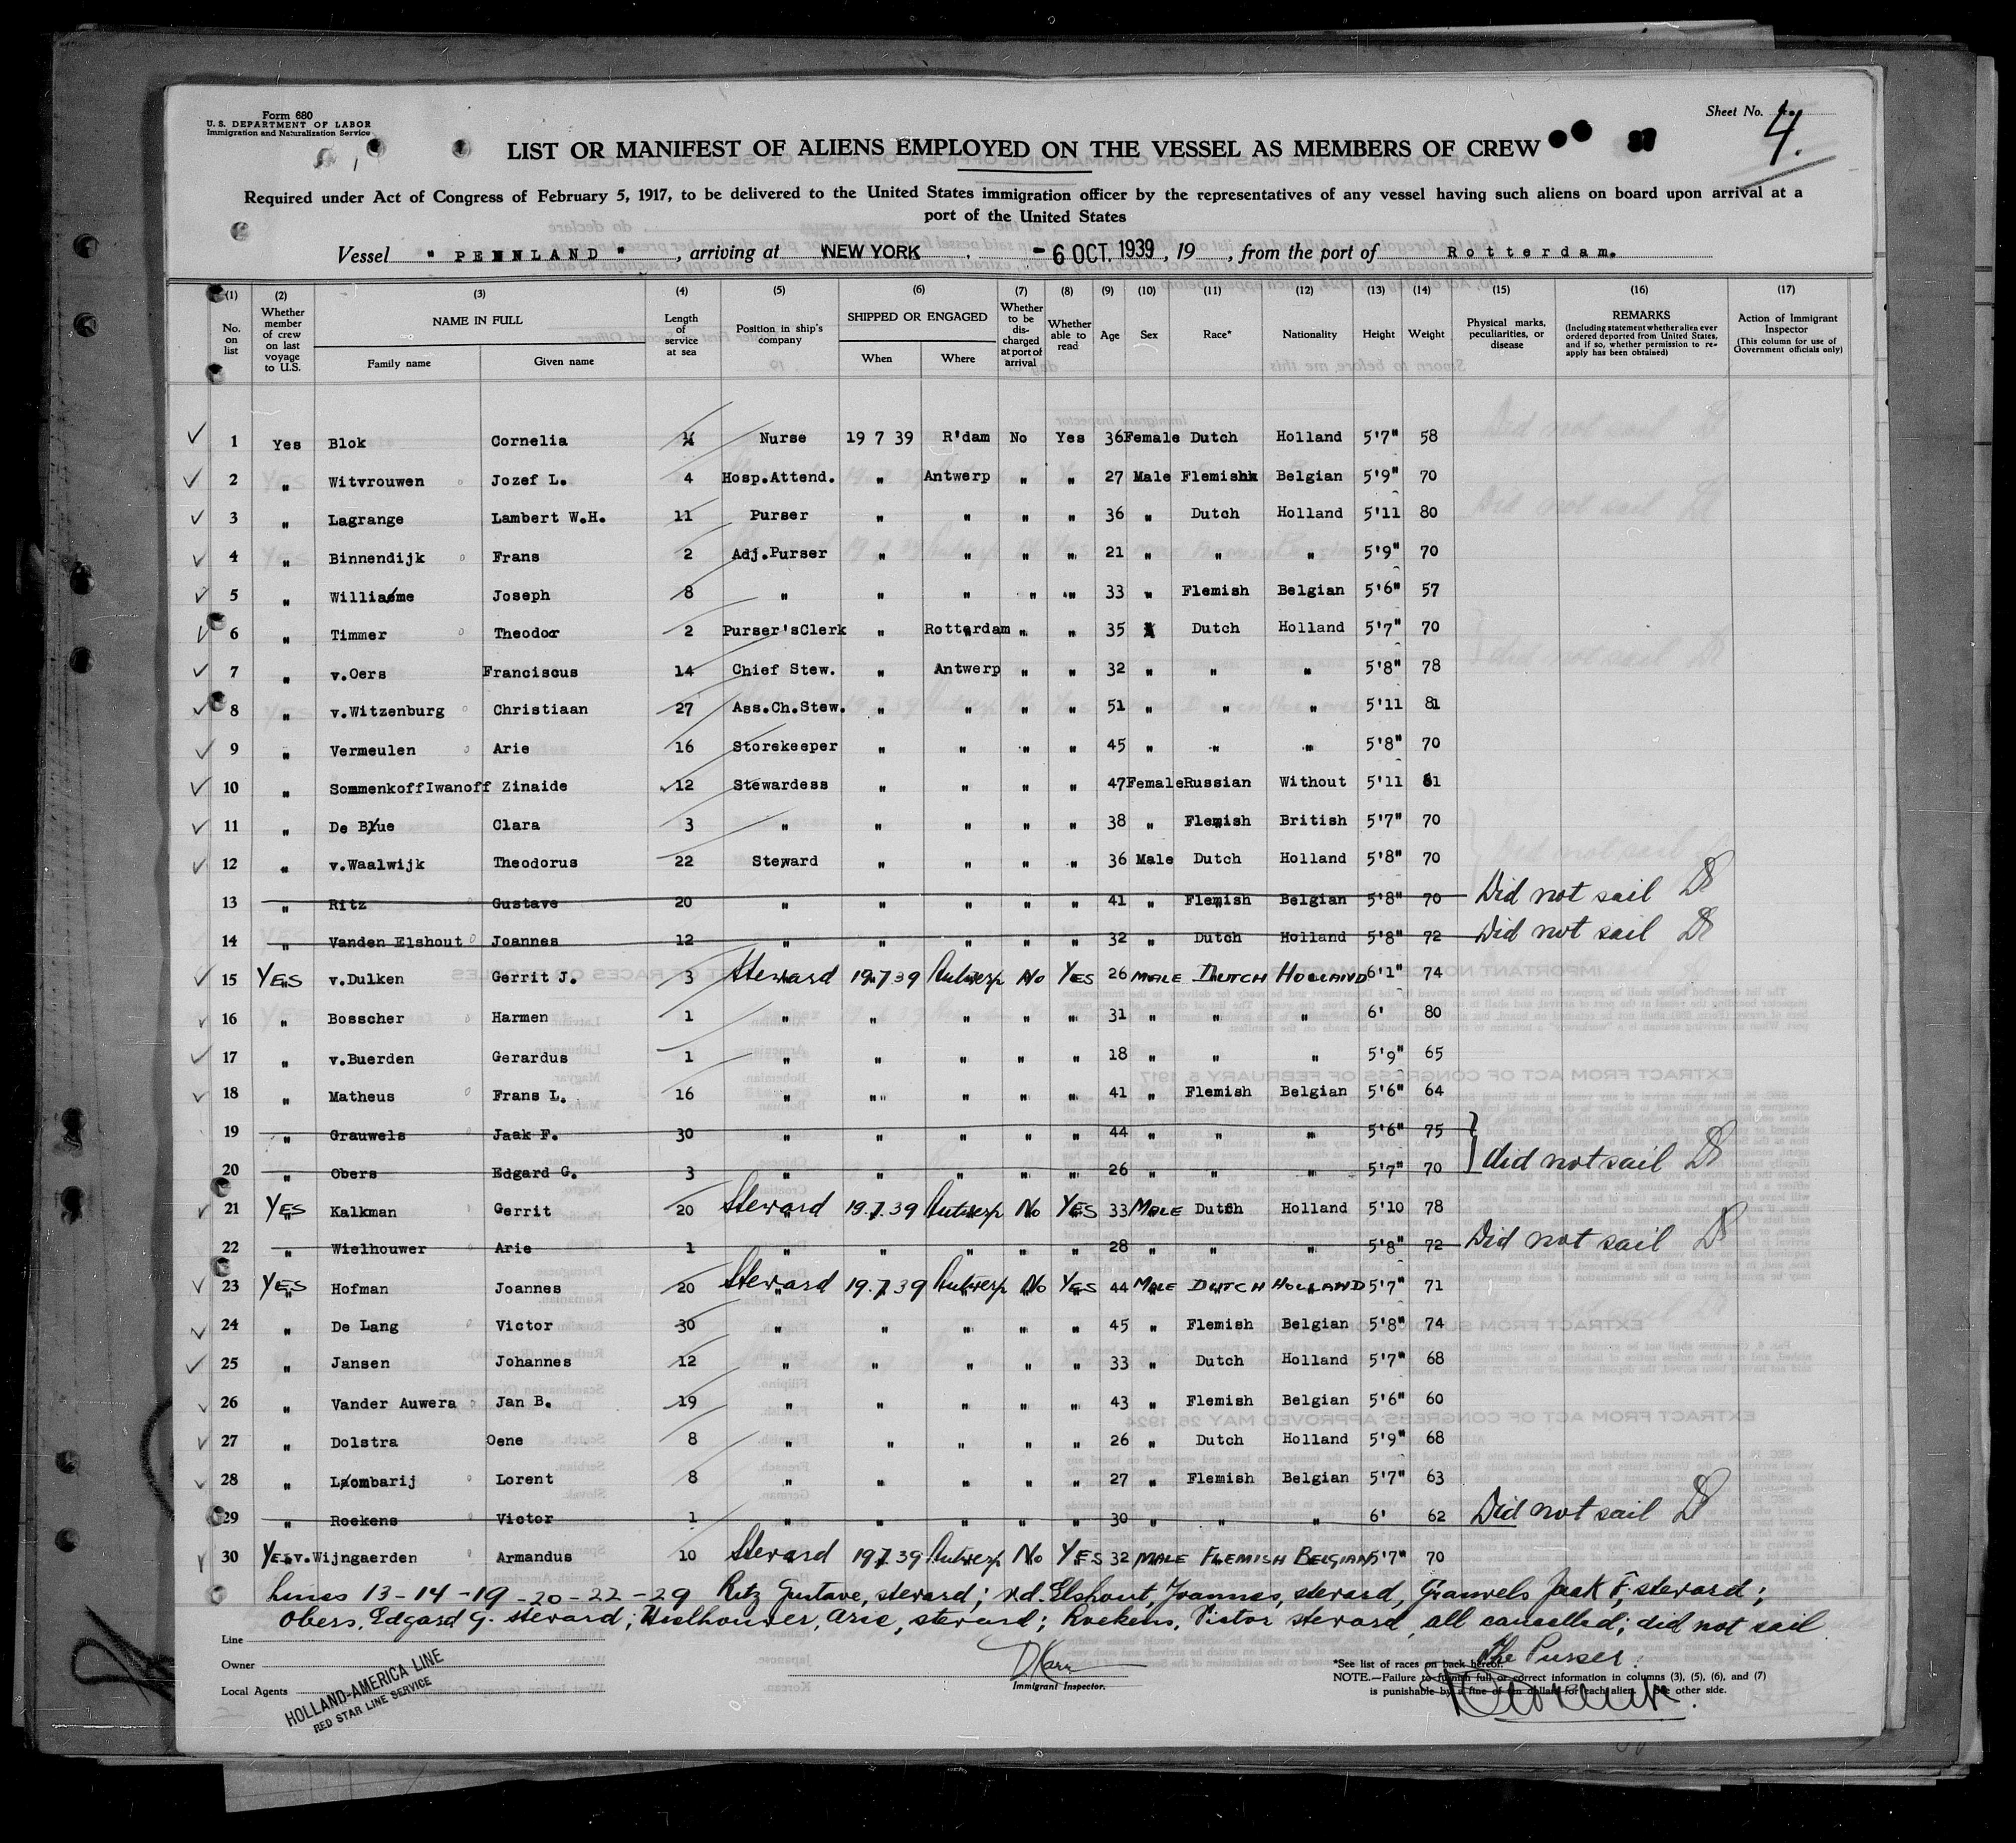 Form 680
U. S. DEPARTMENT OF LABOR
Immigration and Naturalization Service
Sheet No. 4.
LIST OR MANIFEST OF ALIENS EMPLOYED ON THE VESSEL AS MEMBERS OF CREW
Required under Act of Congress of February 5, 1917, to be delivered to the United States immigration officer by the representatives of any vessel having such aliens on board upon arrival at a
port of the United States
Vessel " PENNLAND " , arriving at NEW YORK , - 6 OCT. 1939 , 19 , from the port of Rotterdam.
(1) (2) (3) (4) (5) (6) (7) (8) (9) (10) (11) (12) (13) (14) (15) (16) (17)
No. on list Whether member of crew on last voyage to U.S. NAME IN FULL Family name Given name Length of service at sea Position in ship's company SHIPPED OR ENGAGED When Where Whether to be discharged at port of arrival Whether able to read Age Sex Race* Nationality Height Weight Physical marks, peculiarities, or disease REMARKS (Including statement whether alien ever ordered deported from United States, and if so, whether permission to reapply has been obtained) Action of Immigrant Inspector (This column for use of Government officials only)
1 Yes Blok Cornelia Nurse 19 7 39 R'dam No Yes 36 Female Dutch Holland 5'7" 58
2 " Witvrouwen Jozef L. 4 Hosp.Attend. " Antwerp " " 27 Male Flemish Belgian 5'9" 70
3 " Lagrange Lambert W.H. 11 Purser " " " " 36 " Dutch Holland 5'11 80
4 " Binnendijk Frans 2 Adj.Purser " " " " 21 " " " 5'9" 70
5 " Williame Joseph 8 " " " " " 33 " Flemish Belgian 5'6" 57
6 " Timmer Theodor 2 Purser'sClerk " Rotterdam " " 35 " Dutch Holland 5'7" 70
7 " v.Oers Franciscus 14 Chief Stew. " Antwerp " " 32 " " " 5'8" 78
8 " v.Witzenburg Christiaan 27 Ass.Ch.Stew. " " " " 51 " " " 5'11 81
9 " Vermeulen Arie 16 Storekeeper " " " " 45 " " " 5'8" 70
10 " SommenkoffIwanoff Zinaide 12 Stewardess " " " " 47 Female Russian Without 5'11 61
11 " De Blue Clara 3 " " " " " 38 " Flemish British 5'7" 70
12 " v.Waalwijk Theodorus 22 Steward " " " " 36 Male Dutch Holland 5'8" 70
13 " Ritz Gustave 20 " " " " " 41 " Flemish Belgian 5'8" 70 Did not sail
14 " Vanden Elshout Joannes 12 " " " " " 32 " Dutch Holland 5'8" 72 Did not sail
15 YES v.Dulken Gerrit J. 3 Steward 19.7.39 Antwerp No YES 26 MALE DUTCH HOLLAND 6'1" 74
16 " Bosscher Harmen 1 " " " " " 31 " " " 6' 80
17 " v.Buerden Gerardus 1 " " " " " 18 " " " 5'9" 65
18 " Matheus Frans L. 16 " " " " " 41 " Flemish Belgian 5'6" 64
19 " Grauwels Jaak F. 30 " " " " " 44 " " " 5'6" 75
20 " Obers Edgard G. 3 " " " " " 26 " " " 5'7" 70 did not sail
21 YES Kalkman Gerrit 20 Steward 19.7.39 Antwerp No YES 33 MALE Dutch Holland 5'10 78
22 " Wielhouwer Arie 1 " " " " " 28 " " " 5'8" 72 Did not sail
23 YES Hofman Joannes 20 Steward 19.7.39 Antwerp No YES 44 MALE DUTCH HOLLAND 5'7" 71
24 " De Lang Victor 30 " " " " " 45 " Flemish Belgian 5'8" 74
25 " Jansen Johannes 12 " " " " " 33 " Dutch Holland 5'7" 68
26 " Vander Auwera Jan B. 19 " " " " " 43 " Flemish Belgian 5'6" 60
27 " Dolstra Oene 8 " " " " " 26 " Dutch Holland 5'9" 68
28 " Lombarij Lorent 8 " " " " " 27 " Flemish Belgian 5'7" 63
29 " Roekens Victor 1 " " " " " 30 " " " 6' 62 Did not sail
30 Yes v.Wijngaerden Armandus 10 Steward 19.7.39 Antwerp No YES 32 MALE FLEMISH BELGIAN 5'7" 70
Lines 13-14-19-20-22-29 Ritz Gustave, steward; v.d. Elshout, Joannes, steward, Grauwels Jaak F, steward;
Obers, Edgard G. steward; Wielhouwer, Arie, steward; Roekens, Victor steward, all cancelled; did not sail
The Purser.
Line
Owner
Local Agents
HOLLAND-AMERICA LINE
RED STAR LINE SERVICE
Immigrant Inspector.
*See list of races on back hereof.
NOTE.—Failure to furnish full or correct information in columns (3), (5), (6), and (7)
is punishable by a fine of ten dollars for each alien. See other side.